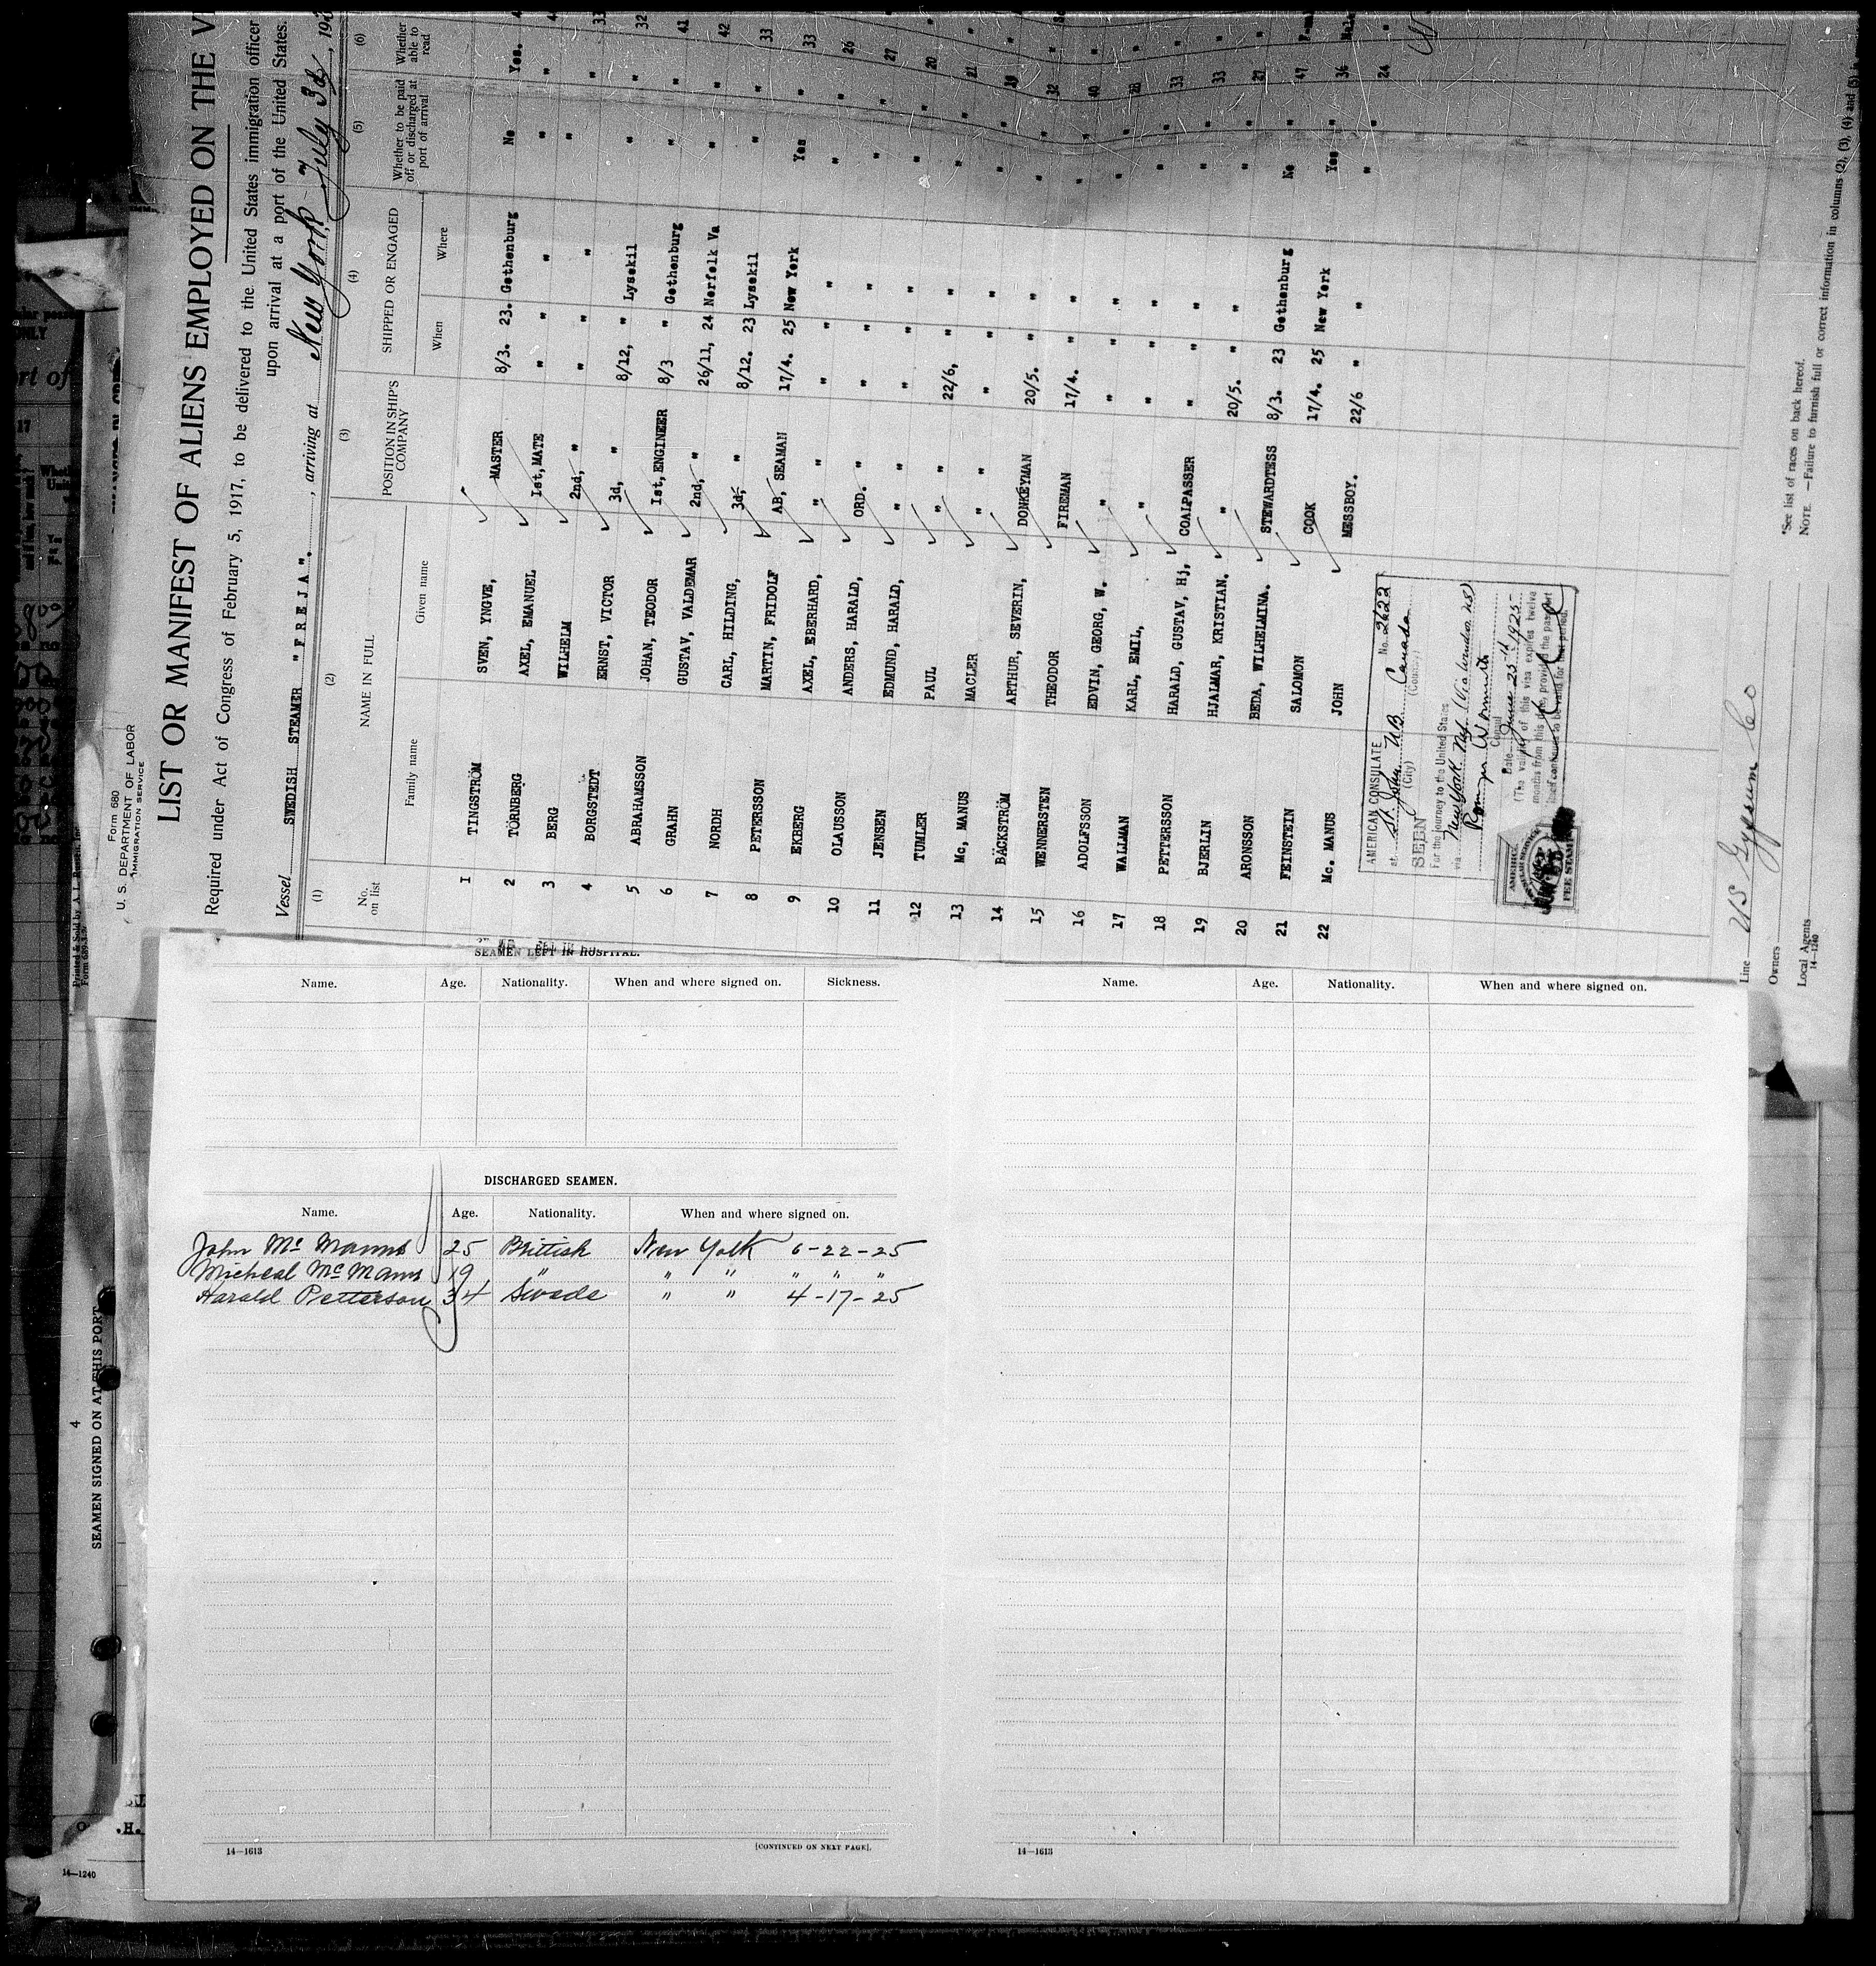 Form 680
U. S. DEPARTMENT OF LABOR
IMMIGRATION SERVICE
LIST OR MANIFEST OF ALIENS EMPLOYED ON THE
Required under Act of Congress of February 5, 1917, to be delivered to the United States immigration officer
upon arrival at a port of the United States.
Vessel SWEDISH STEAMER "FREJA"., arriving at New York July 3d, 192
(1) (2) (3) (4) (5) (6)
No. on list NAME IN FULL POSITION IN SHIP'S COMPANY SHIPPED OR ENGAGED Whether to be paid off or discharged at port of arrival Whether able to read
Family name Given name When Where
1 TINGSTRÖM SVEN, YNGVE, MASTER 8/3. 23. Gothenburg No Yes.
2 TÖRNBERG AXEL, EMANUEL 1st, MATE " " " " "
3 BERG WILHELM 2nd, " " " " " "
4 BORGSTEDT ERNST, VICTOR 3d, " 8/12, " Lysekil " "
5 ABRAHAMSSON JOHAN, TEODOR 1st, ENGINEER 8/3 " Gothenburg " "
6 GRAHN GUSTAV, VALDEMAR 2nd, " 26/11, 24 Norfolk Va " "
7 NORDH CARL, HILDING, 3d, " 8/12. 23 Lysekil " "
8 PETERSSON MARTIN, FRIDOLF AB, SEAMAN 17/4. 25 New York Yes "
9 EKBERG AXEL, EBERHARD, " " " " " " "
10 OLAUSSON ANDERS, HARALD, ORD. " " " " " "
11 JENSEN EDMUND, HARALD, " " " " " " "
12 TUMLER PAUL " " 22/6, " " " "
13 Mc, MANUS MACLER " " " " " " "
14 BÄCKSTRÖM ARTHUR, SEVERIN, DONKEYMAN 20/5. " " " "
15 WENNERSTEN THEODOR FIREMAN 17/4. " " " "
16 ADOLFSSON EDVIN, GEORG, W. " " " " " "
17 WALLMAN KARL, EMIL, " " " " " "
18 PETTERSSON HARALD, GUSTAV, Hj, COALPASSER " " " " "
19 BJERLIN HJALMAR, KRISTIAN. " 20/5. " " " "
20 ARONSSON BEDA, WILHELMINA. STEWARDTESS 8/3. 23 Gothenburg No "
21 FEINSTEIN SALOMON COOK 17/4. 25 New York Yes "
22 Mc. MANUS JOHN MESSBOY. 22/6 " " " "
AMERICAN CONSULATE No. 2622
at St. John N.B. Canada
(City) (Country)
SEEN
For the journey to the United States
via New York
Consul
Date June 25th 1925
(The validity of this visa expires twelve
months from this date, provided the passport
itself continues to be valid for that period.
FEE STAMP
Line US Gypsum Co
Owners
Local Agents
14—1240
*See list of races on back hereof.
NOTE.—Failure to furnish full or correct information in columns (2), (3), (4) and (5)
SEAMEN LEFT IN HOSPITAL.
Name. Age. Nationality. When and where signed on. Sickness.
DISCHARGED SEAMEN.
Name. Age. Nationality. When and where signed on.
John Mc Manus 25 British New York 6-22-25
Micheal McManus 19 " " " " " "
Harald Petterson 34 Swede " " 4-17-25
14—1613
[CONTINUED ON NEXT PAGE].
Name. Age. Nationality. When and where signed on.
14—1613
4
SEAMEN SIGNED ON AT THIS PORT
14—1240